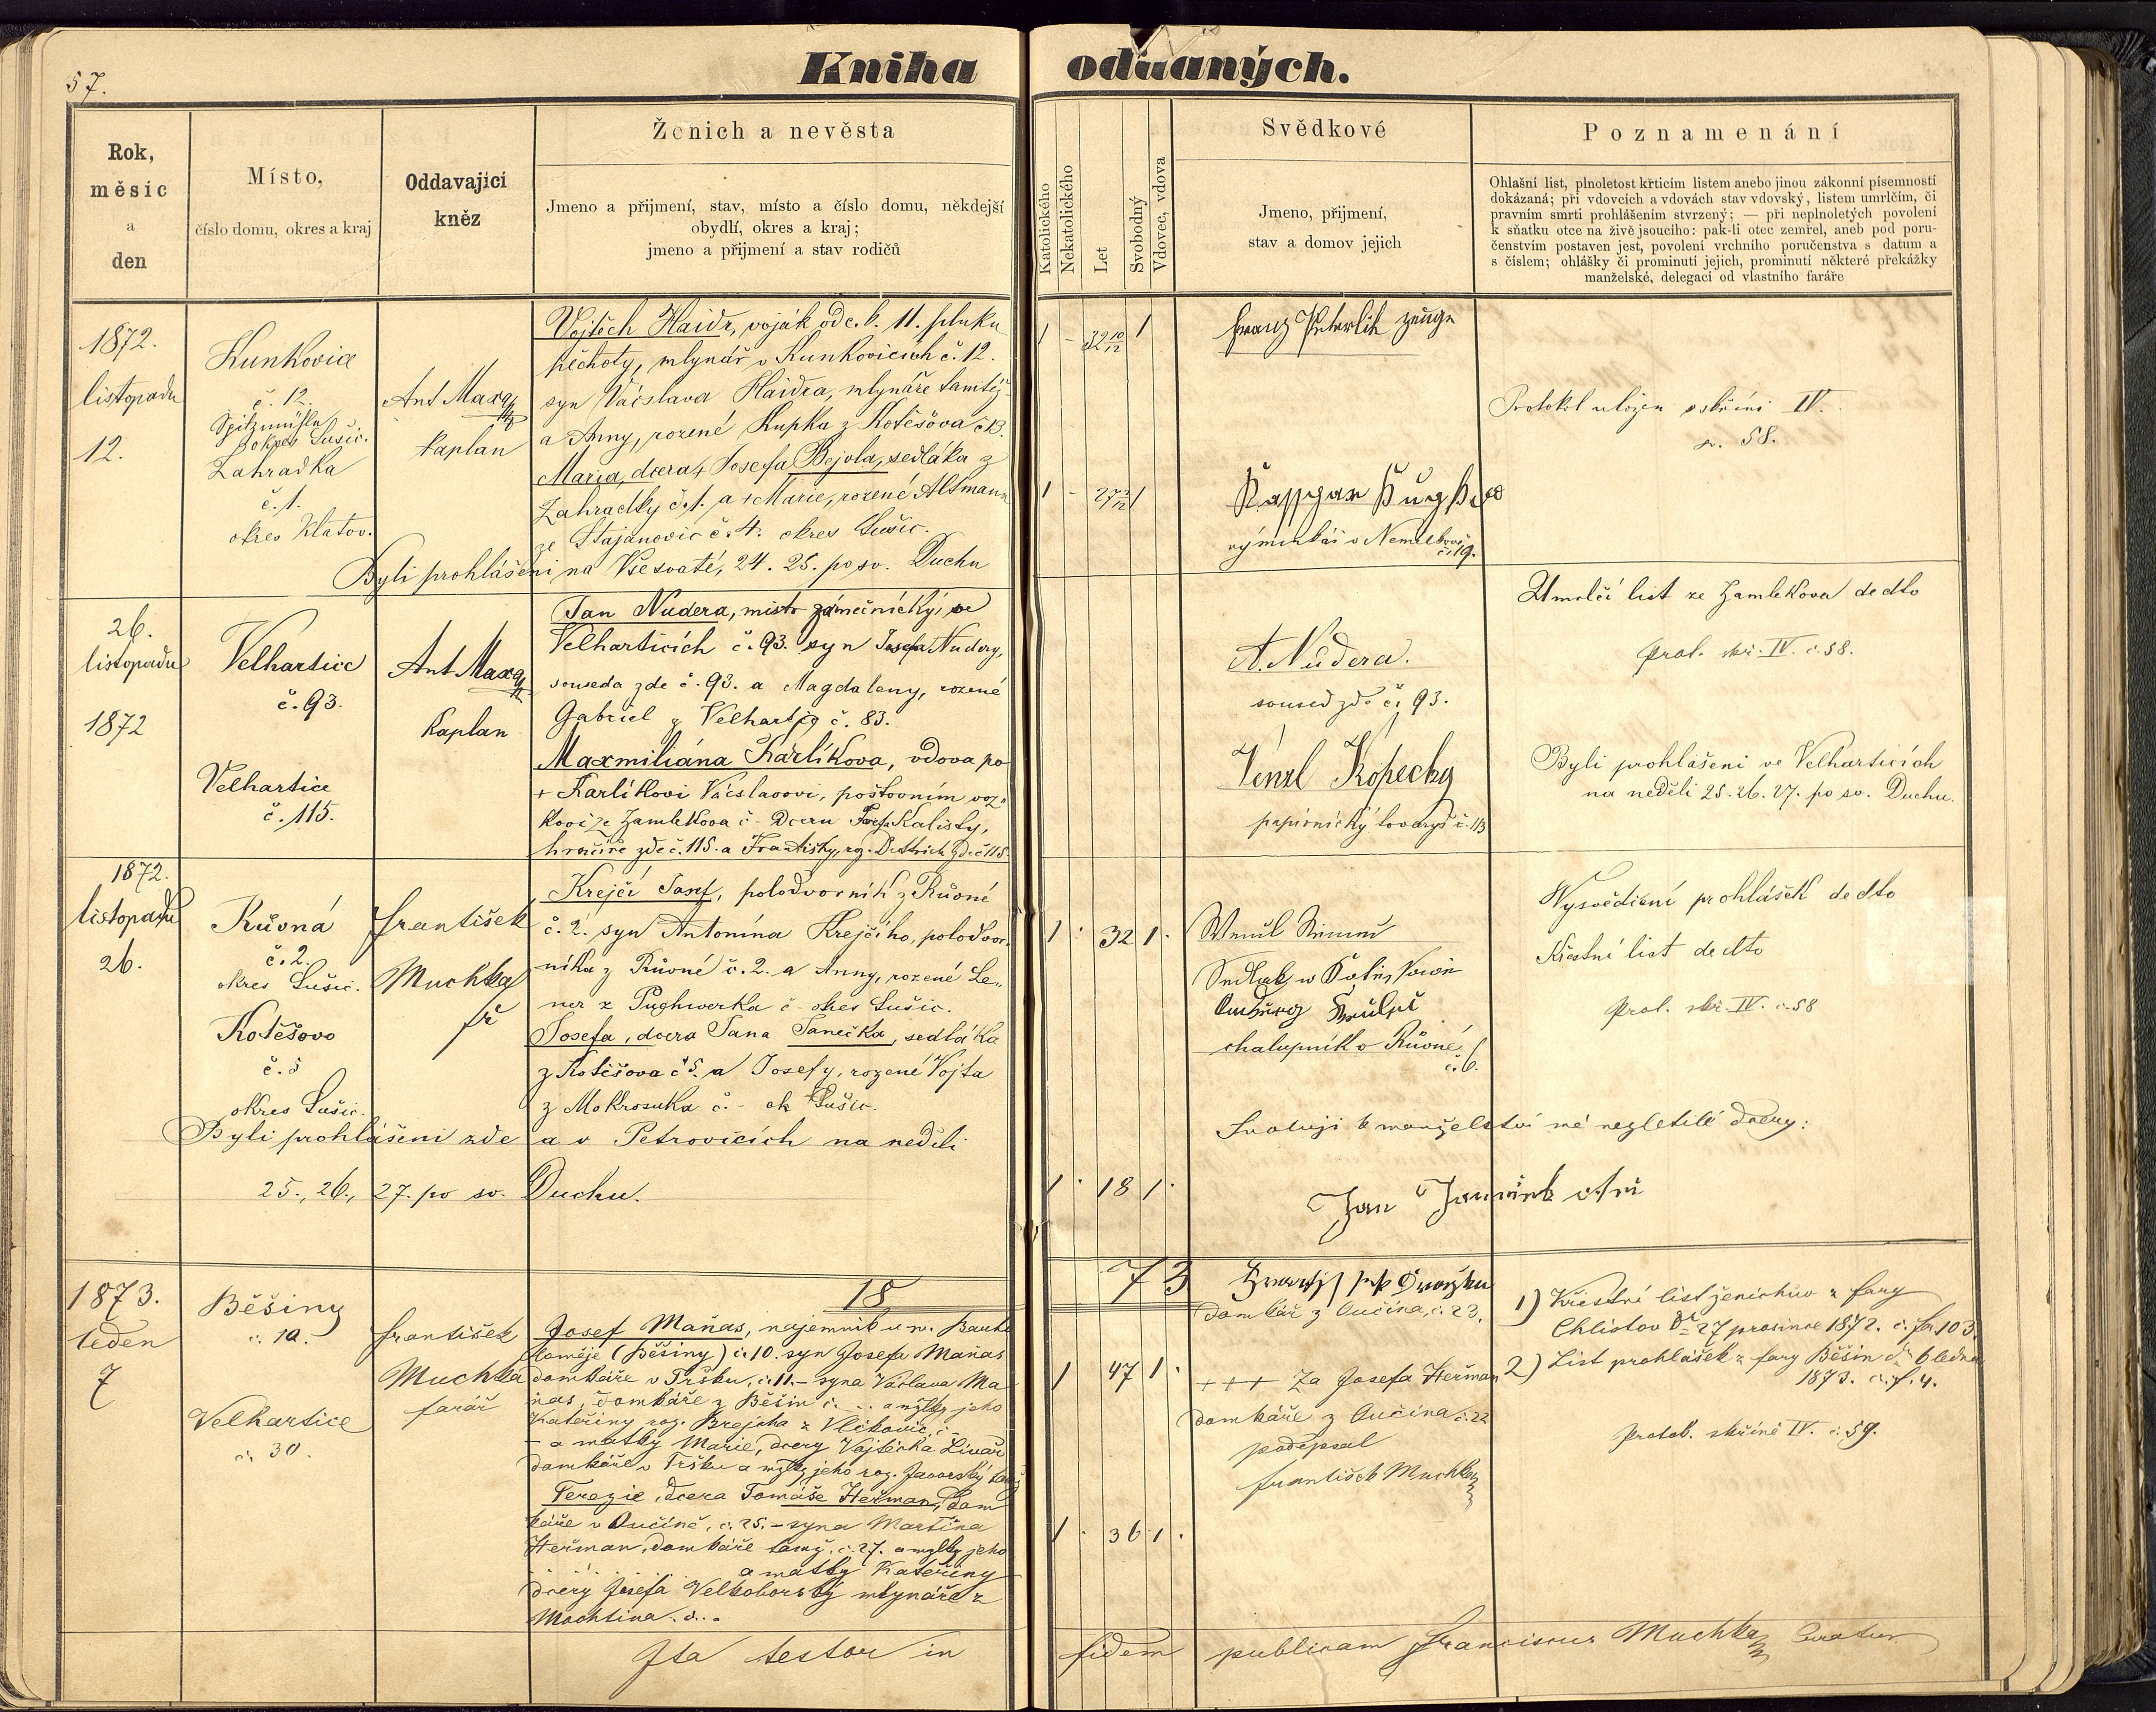 57.
Kniha oddaných.
Rok,
měsíc
a
den
Místo,
číslo domu, okres a kraj
Oddavající
kněz
Ženich a nevěsta
Jmeno a přijmení, stav, místo a číslo domu, někdejší
obydlí, okres a kraj;
jmeno a přijmení a stav rodičů
Katolického
Nekatolického
Let
Svobodný
Vdovec, vdova
Svědkové
Jmeno, přijmení,
stav a domov jejich
Poznamenání
Ohlašní list, plnoletost křticím listem anebo jinou zákonní písemností
dokázaná; při vdovcích a vdovách stav vdovský, listem umrlčím, či
pravním smrti prohlášením stvrzený; — při neplnoletých povolení
k sňatku otce na živě jsoucího: pak-li otec zemřel, aneb pod poru-
čenstvím postaven jest, povolení vrchního poručenstva s datum a
s číslem; ohlášky či prominutí jejich, prominutí některé překážky
manželské, delegací od vlastního faráře
1872.
listopadu
12.
Kunkovice
č. 12.
Spitzmühle
okres Sušic.
Zahradka
č. 1.
okres Klatov.
Ant Maxa
kaplan
Vojtěch Haidr, voják od c. k. 11. pluku
pěchoty, mlynář v Kunkovicích č. 12.
syn Václava Haidra, mlynáře tamtéž
a Anny, rozené Kupka z Kotěšova č 13.
Maria, dcera Josefa Bejvla, sedláka z
Zahradky č. 1. a + Marie, rozené Altmann
ze Stajanovic č. 4. okres Sušic.
Byli prohlášeni na Všesvaté, 24. 25. po sv. Duchu
1 - 32 10/12 1
1 - 27 1
Franz Peterlik
výminkář v č. 19.
Protokol uložen v skříni IV.
č. 58.
26.
listopadu
1872
Velhartice
č. 93.
Velhartice
č. 115.
Ant Maxa
kaplan
Jan Nudera, mistr zámečnický, ve
Velharticích č. 93. syn Josefa Nudery,
souseda zde č. 93. a Magdaleny, rozené
Gabriel z Velhartic č. 83.
Maxmiliána Karlíkova, vdova po
+ Karlíkovi Václavovi, poštovním voz-
kovi ze Zamlekova č - dcera Josefa Kalisty,
hrnčíře zde č. 115. a Františky, roz. Dettrich zde č 115.
A. Nudera.
soused zde č. 93.
Venzl Kopecky
papírnický tovaryš č. 113
Umrlčí list ze Zamlekova de dto
Prot. skř. IV. č. 58.
Byli prohlášeni ve Velharticích
na neděli 25. 26. 27. po sv. Duchu.
1872.
listopadu
26.
Růvná
č. 2.
okres Sušic.
Kotěšovo
č. 5
okres Sušic.
František
Muchka
Krejčí Josef, polodvorník z Růvné
č. 2. syn Antonína Krejčího, polodvor-
níka z Růvné č. 2. a Anny, rozené Le-
ner z Puchwerka č - okres Sušic.
Josefa, dcera Jana Janečka, sedláka
z Kotěšova č 5. a Josefy, rozené Vojta
z Mokrosuka č. - ok Sušic.
Byli prohlášeni zde a v Petrovicích na neděli
25., 26., 27. po sv. Duchu.
1 . 32 1 .
1 . 18 1 .
chalupník v Růvné
č. 6.
Svoluji k manželství mé nezletilé dcery:
Jan Janeček otec
Vysvědčení prohlášek de dto
Křestní list de dto
Prot. skř. IV. č. 58
18 73
1873.
leden
7
Běšiny
č. 10.
Velhartice
č. 30.
František
Muchka
farář
Josef Maňas, najemník u n.
(Běšiny) č. 10. syn Josefa Maňas
domkáře v Tršku, č. 11. – syna Václava Ma
ňas, domkáře z Běšin č. .. a mzlky jeho
Kateřiny roz. Brejcha z Vlčkovic, č. –
– a matky Marie, dcery Vojtěcha
domkáře v Tršku a mzlky jeho roz. Javorský
Terezie, dcera Tomáše Heřman, dom
káře v Ručíně, č. 25. – syna Martina
Heřman, domkáře tamž. č. 27. a mzlky jeho
. . . . . a matky Kateřiny
dcery Josefa Velkoborský mlynáře z
Mochtína. č. .
1 47 1 .
1 . 36 1 .
domkář z Dučína, č. 23.
+++ za Josefa Heřman
domkáře z Dučína č. 22
podepsal
František Muchka
1) Křestní list ženichův z fary
Chlistov dto 27 prosince 1872. č. 103.
2) List prohlášek z fary Běšin dto 6 ledna
1873. č. 4.
Protok. skříně IV. č. 59.
Ita testor in fidem publicam Franciscus Muchka Curatus